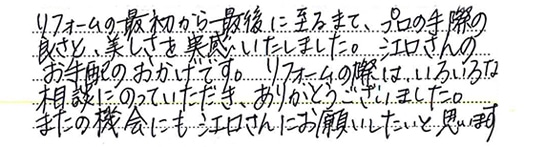 リフォームの最初から最後に至るまで、プロの手際の
良さと、美しさを実感いたしました。江口さんの
お手配のおかげです。リフォームの際は、いろいろな
相談にのっていただき、ありがとうございました。
またの機会にも江口さんにお願いしたいと思います